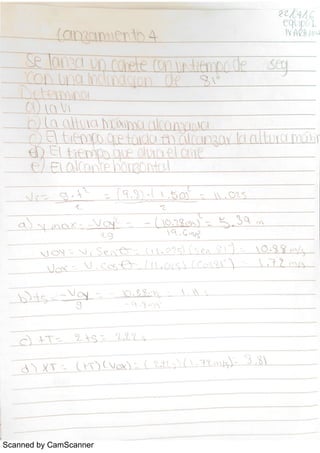 Lanzamiento 4
Se lanza un cohete con un tiempo de seg
con una inclinacion de 81°
Determina
a) la Vi
b) La altura maxima alcanzada
c) El tiempo que tarda en alcanzar la altura
d) El tiempo que dura el aire
e) El alcance horizontal
= 11.025
a) y max = Voy² = = 5.39 m
2g 19.6
Voy = Vi Sen θ = (11.025)(sen 81°) 10.88 m/s
Vox = Vi cos θ = (11.025)(cos 81°) = 1.72 m/s
b) ts = -Voy =
g
c) tT = 2ts = 2.22 s
d) XT = (tT)(Vox) = (2.22s)(1.72m/s) = 3.81
Scanned by CamScanner